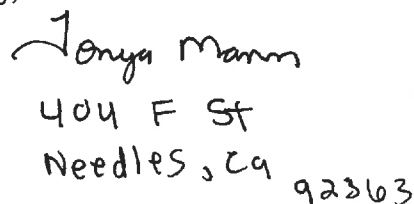 Tonya Mann
404 F St
Needles, Ca
92363